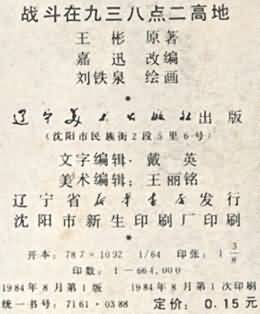 战斗在九三八点二高地
王彬 原著
嘉迅 改编
刘铁泉 绘画
辽宁美术出版社出版
(沈阳市民族街2段5里6号)
文字编辑：戴英
美术编辑：王丽铭
辽宁省新华书店发行
沈阳市新生印刷厂印刷
开本：787×1092 1/64 印张：1 3/8
印数：1—664,000
1984年8月第1版 1984年8月第1次印刷
统一书号：7161·0388 定价：0.15元